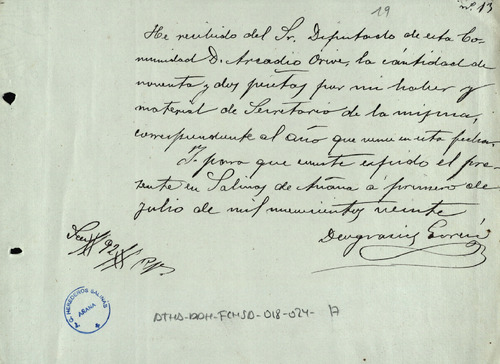 19
nº 13
He recibido del Sr. Diputado de esta Co-
munidad D. Arcadio Orive, la cántidad de
noventa y dos pesetas por mi haber y
material de Secretario de la misma,
correspondiente al año que vence en esta fecha.
Y para que conste expido el pre-
sente en Salinas de Añana á primero de
julio de mil novecientos veinte
Deogracias
Son 92
T.G. HEREDEROS SALINAS
AÑANA
ATHA-DAH-FCMSD-018-024-